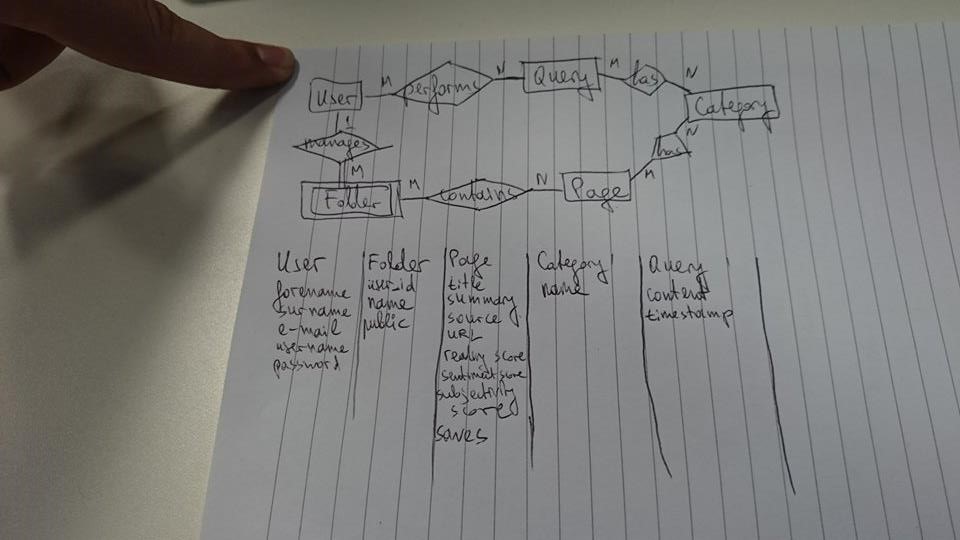 User M performs N Query M has N Category
1 manages M
N has M
Folder M contains N Page
User
forename
surname
e-mail
username
password
Folder
user_id
name
public
Page
title
summary
source
URL
score
sentiment score
subjectivity
score
saves
Category
name
Query
content
timestamp